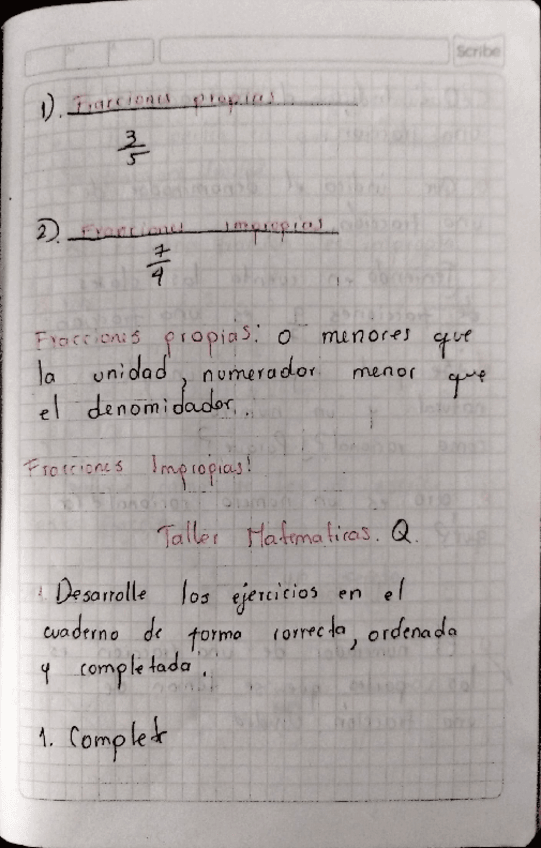 Scribe
1). Fracciones propias
3/5
2) Fracciones impropias
7/4
Fracciones propias: o menores que
la unidad, numerador menor que
el denomidador.
Fracciones Impropias!
Taller Matematicas. Q.
Desarrolle los ejercicios en el
cuaderno de forma correcta, ordenada
y completada.
1. Complet